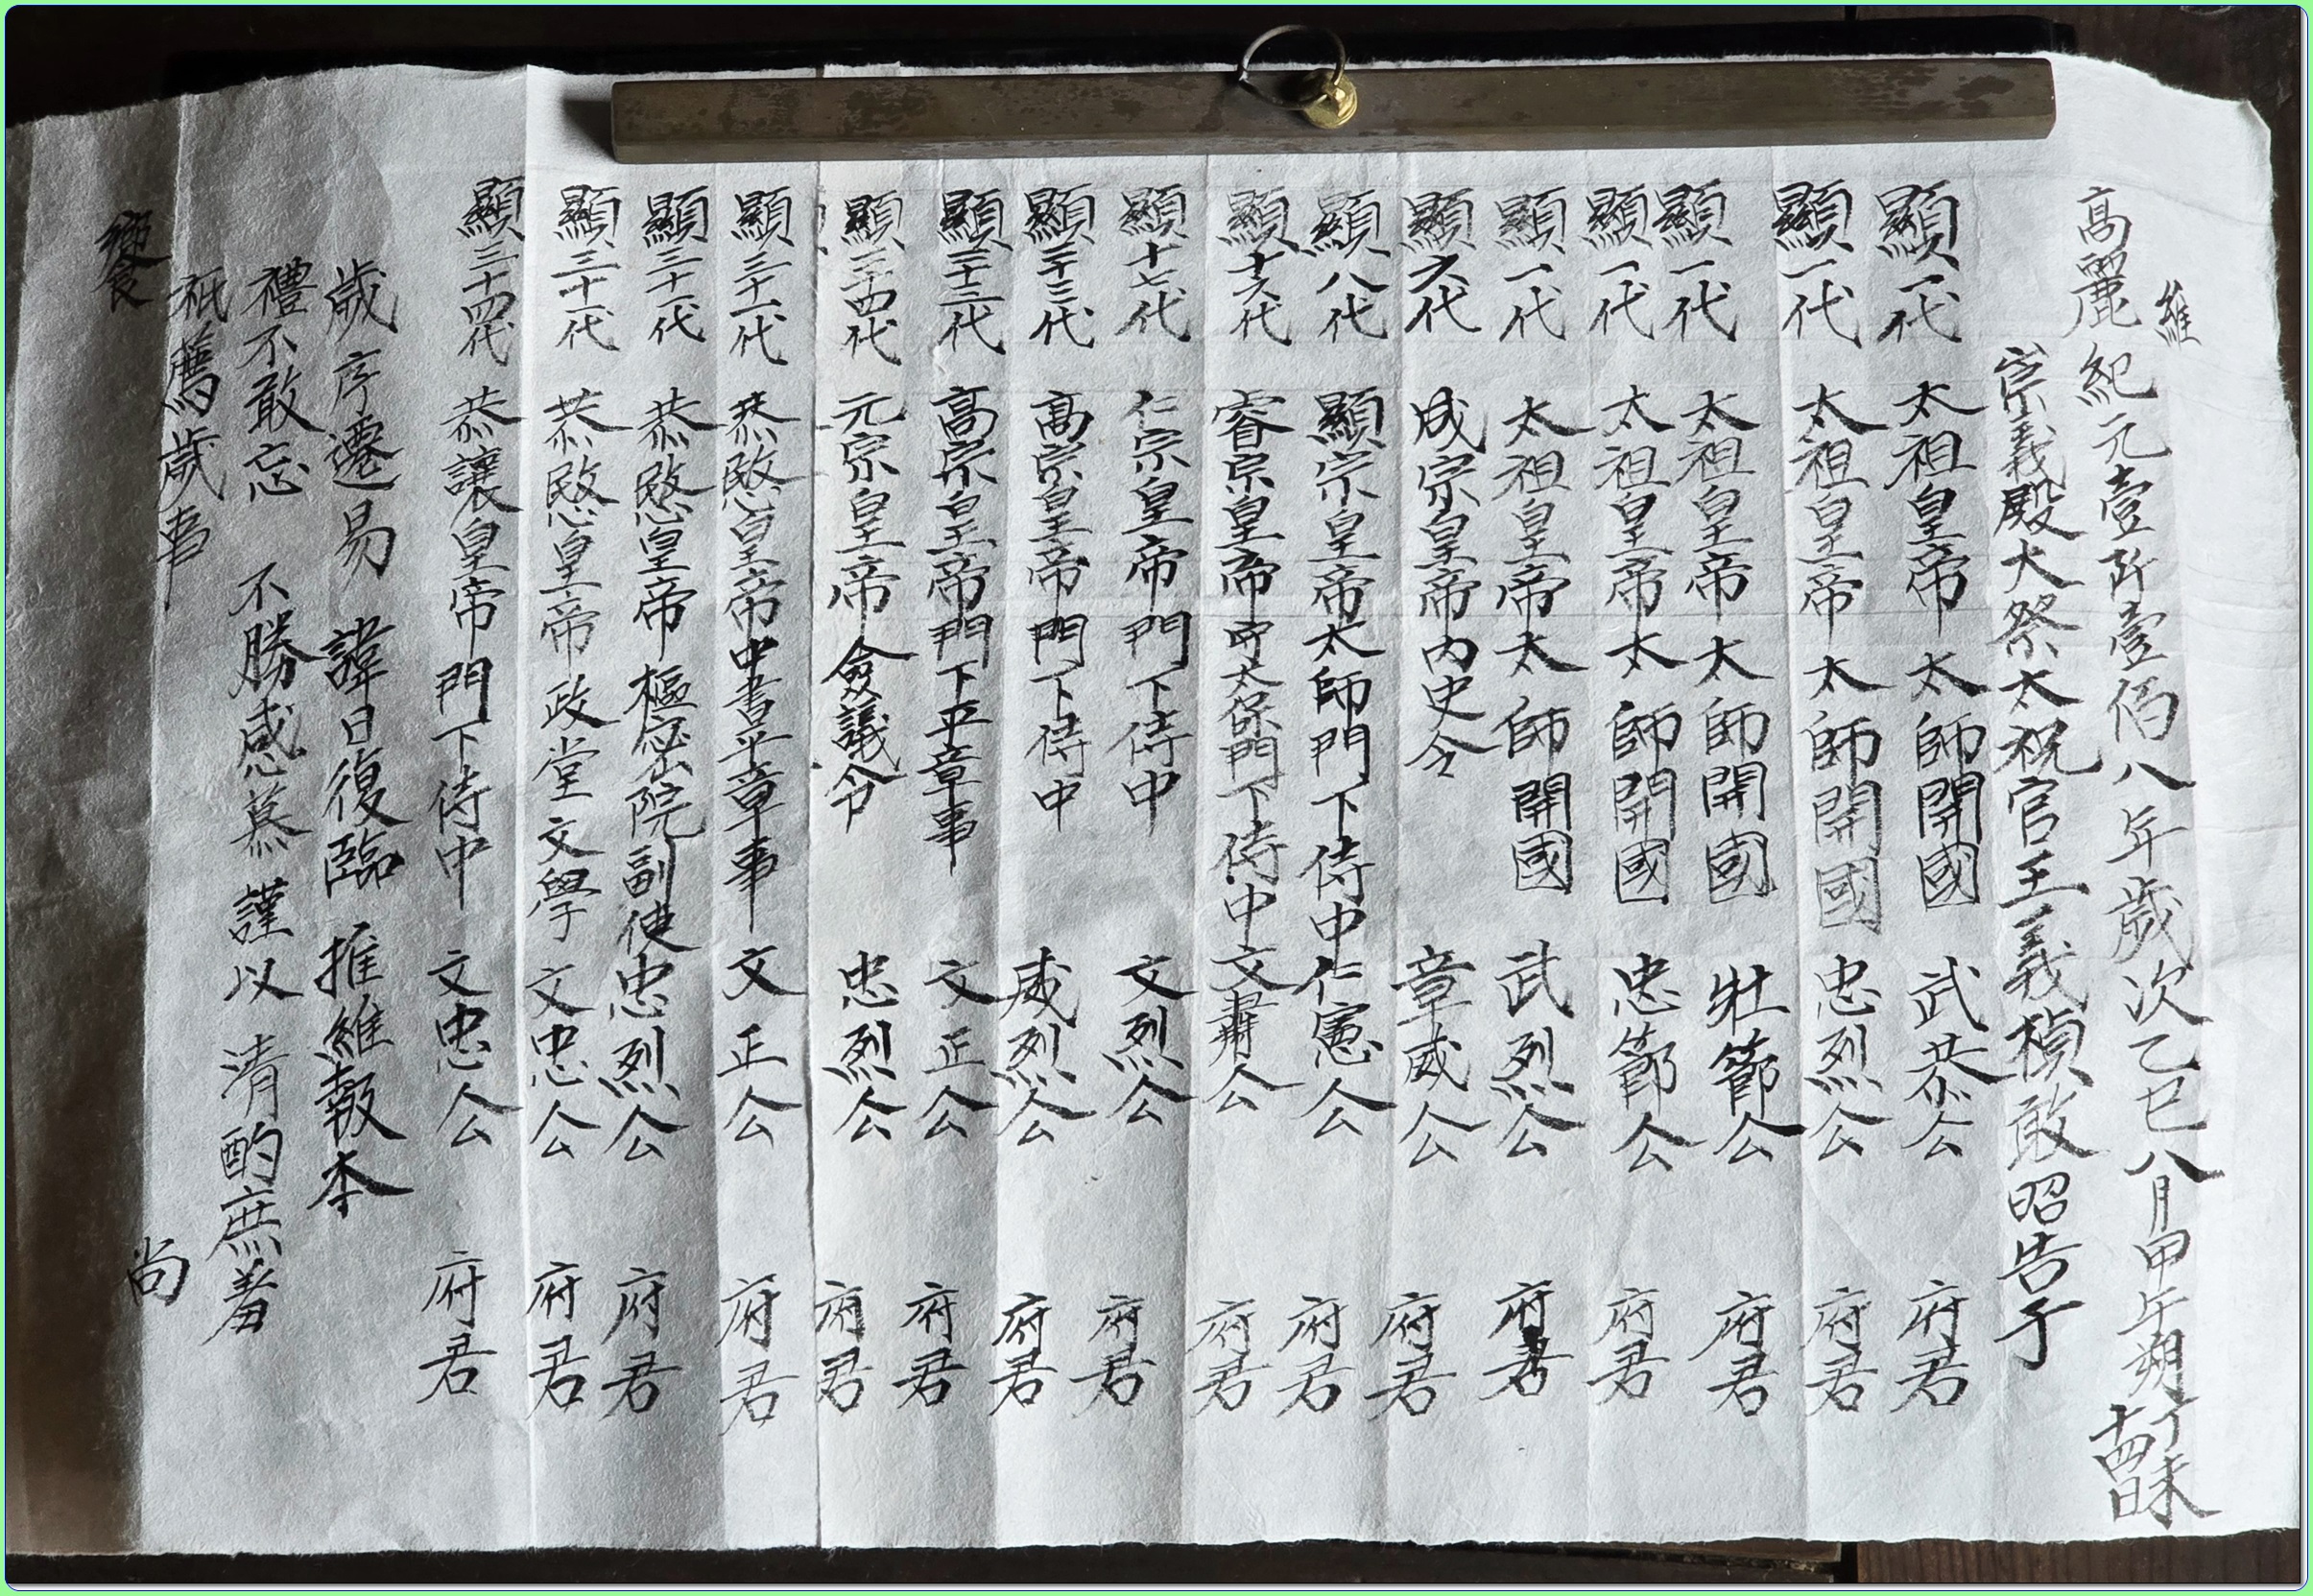 維
高麗紀元壹阡壹佰八年歲次乙巳八月甲午朔十四日丁未
宗義殿大祭太祝官王義楨敢昭告于
顯一代 太祖皇帝 太師開國 武恭公 府君
顯一代 太祖皇帝 太師開國 忠烈公 府君
顯一代 太祖皇帝 太師開國 壯節公 府君
顯一代 太祖皇帝 太師開國 忠節公 府君
顯一代 太祖皇帝 太師開國 武烈公 府君
顯六代 成宗皇帝 內史令 章威公 府君
顯八代 顯宗皇帝 太師門下侍中 仁憲公 府君
顯十六代 睿宗皇帝 守太保門下侍中 文肅公 府君
顯十七代 仁宗皇帝 門下侍中 文烈公 府君
顯二十三代 高宗皇帝 門下侍中 威烈公 府君
顯二十三代 高宗皇帝 門下平章事 文正公 府君
顯二十四代 元宗皇帝 僉議令 忠烈公 府君
顯三十一代 恭愍皇帝 中書平章事 文正公 府君
顯三十一代 恭愍皇帝 樞密院副使 忠烈公 府君
顯三十一代 恭愍皇帝 政堂文學 文忠公 府君
顯三十四代 恭讓皇帝 門下侍中 文忠公 府君
歲序遷易 諱日復臨 推維報本
禮不敢忘 不勝感慕 謹以 清酌庶羞
祇薦歲事 尚
饗